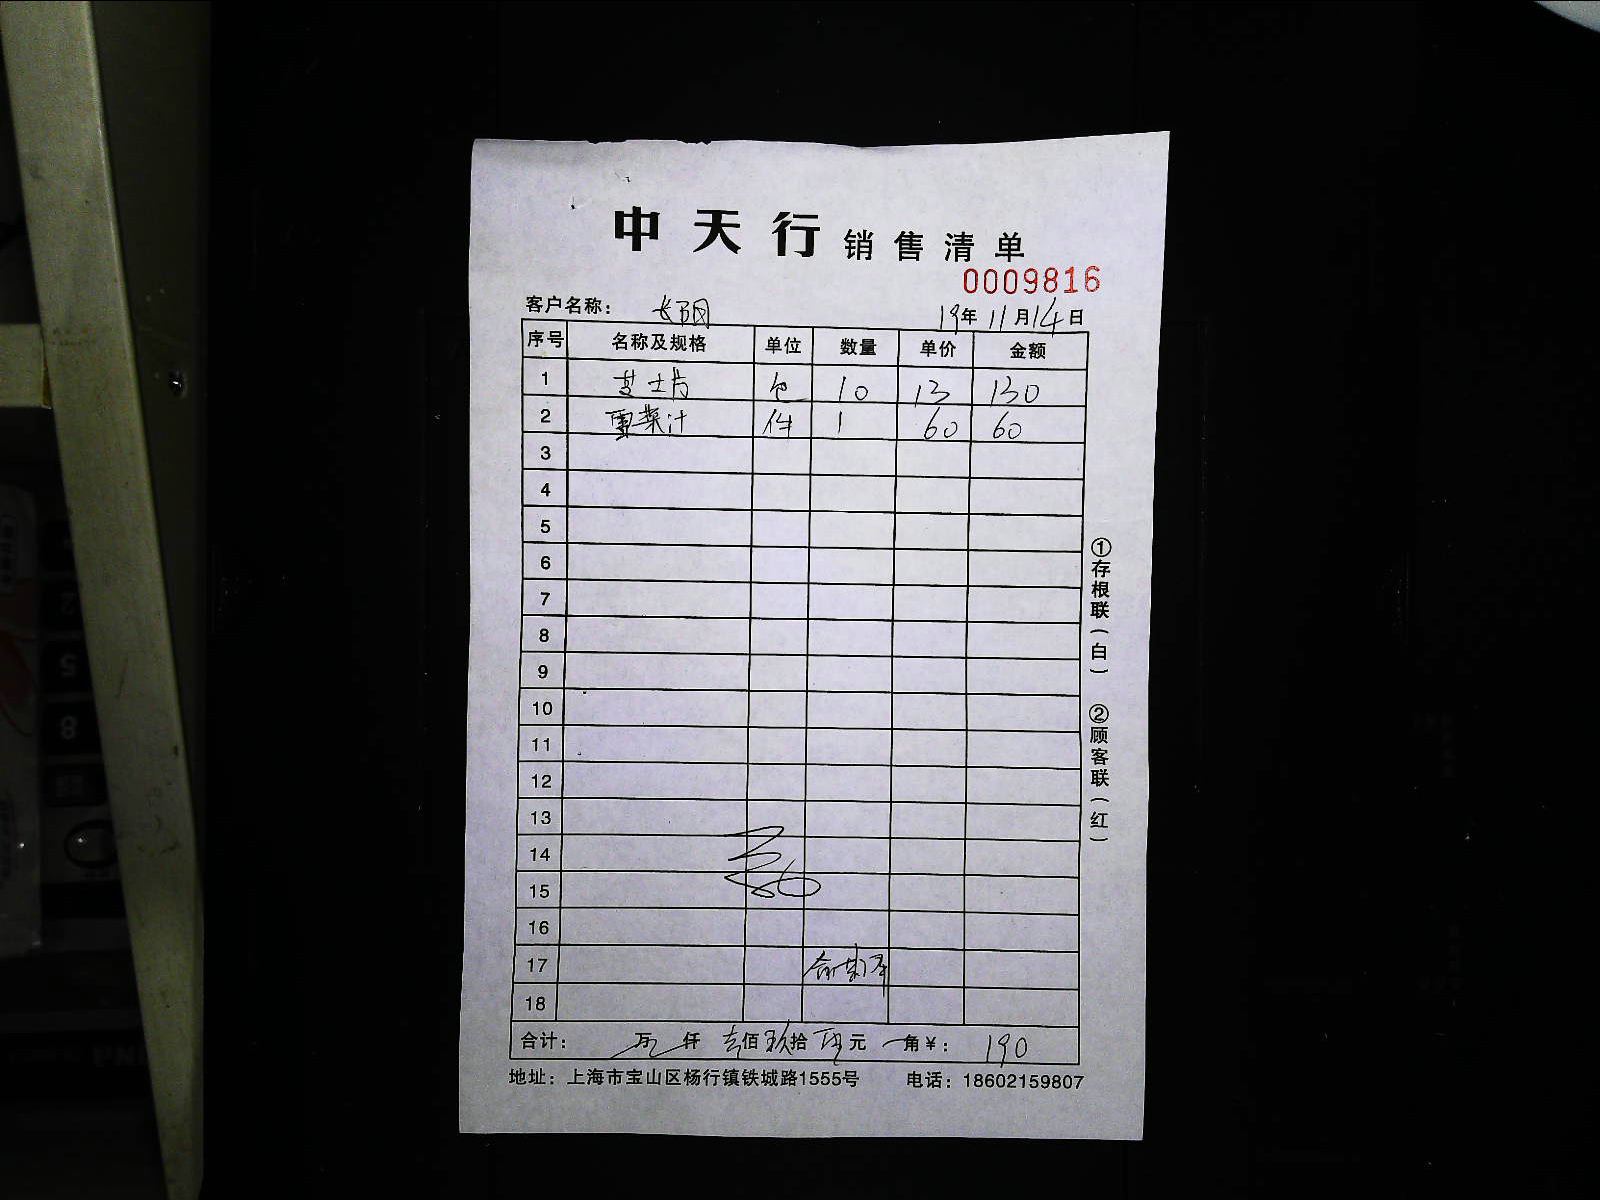 中天行销售清单
0009816
客户名称:
19年11月14日
序号 名称及规格 单位 数量 单价 金额
1 芝士片 包 10 13 130
2 雪菜汁 件 1 60 60
3
4
5
6
7
8
9
10
11
12
13
14
15
16
17
18
合计: 万 仟 壹佰玖拾 元 角¥: 190
地址: 上海市宝山区杨行镇铁城路1555号 电话: 18602159807
①存根联(白) ②顾客联(红)